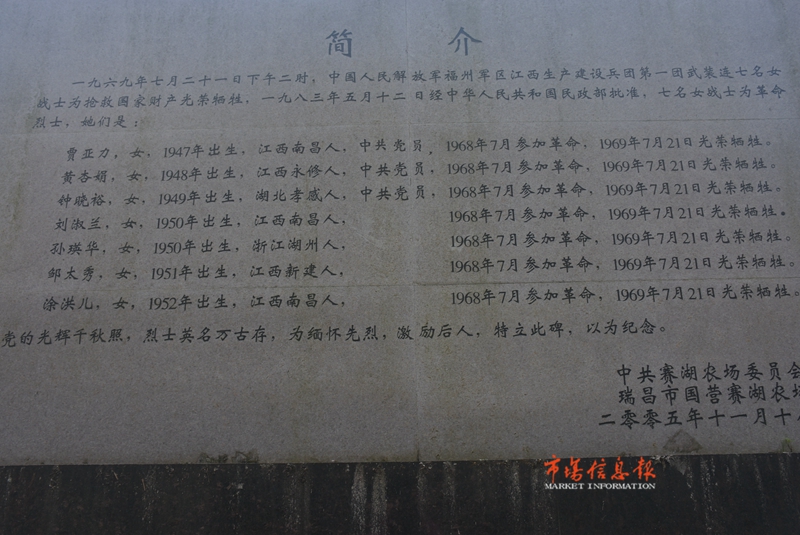 简 介
一九六九年七月二十一日下午二时，中国人民解放军福州军区江西生产建设兵团第一团武装连七名女
战士为抢救国家财产光荣牺牲，一九八三年五月十二日经中华人民共和国民政部批准，七名女战士为革命
烈士，她们是：
贾亚力，女，1947年出生，江西南昌人，中共党员，1968年7月参加革命，1969年7月21日光荣牺牲。
黄杏娟，女，1948年出生，江西永修人，中共党员，1968年7月参加革命，1969年7月21日光荣牺牲。
钟晓裕，女，1949年出生，湖北孝感人，中共党员，1968年7月参加革命，1969年7月21日光荣牺牲。
刘淑兰，女，1950年出生，江西南昌人， 1968年7月参加革命，1969年7月21日光荣牺牲。
孙瑛华，女，1950年出生，浙江湖州人， 1968年7月参加革命，1969年7月21日光荣牺牲。
邹太秀，女，1951年出生，江西新建人， 1968年7月参加革命，1969年7月21日光荣牺牲。
涂洪儿，女，1952年出生，江西南昌人， 1968年7月参加革命，1969年7月21日光荣牺牲。
党的光辉千秋照，烈士英名万古存，为缅怀先烈，激励后人，特立此碑，以为纪念。
中共赛湖农场委员会
瑞昌市国营赛湖农场
二零零五年十一月十
市场信息报
MARKET INFORMATION